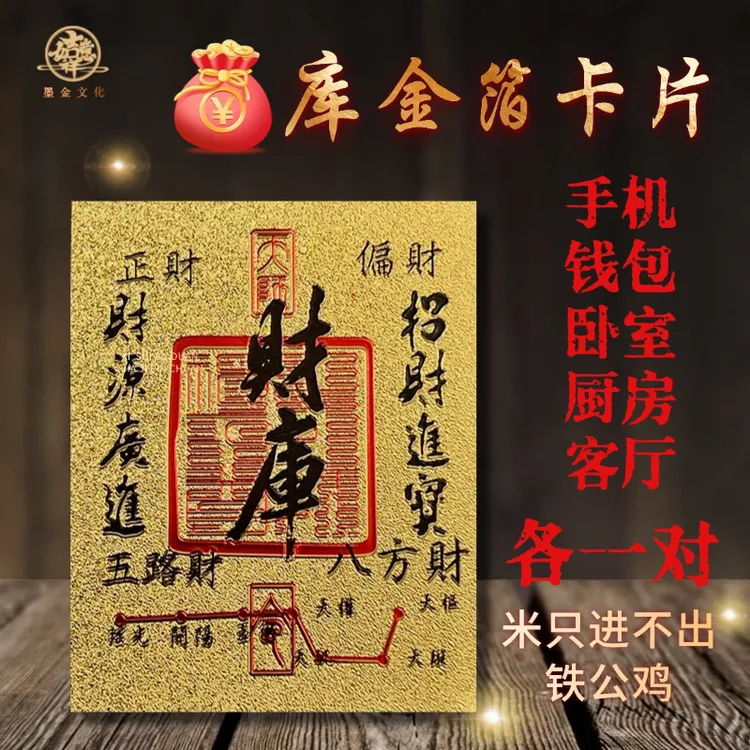 墨金文化
¥
库金箔卡片
手机
钱包
卧室
厨房
客厅
各一对
米只进不出
铁公鸡
正財
偏財
天師
財庫
財源廣進
招財進寶
五路財
八方財
摇光
開陽
天權
天樞
天璇